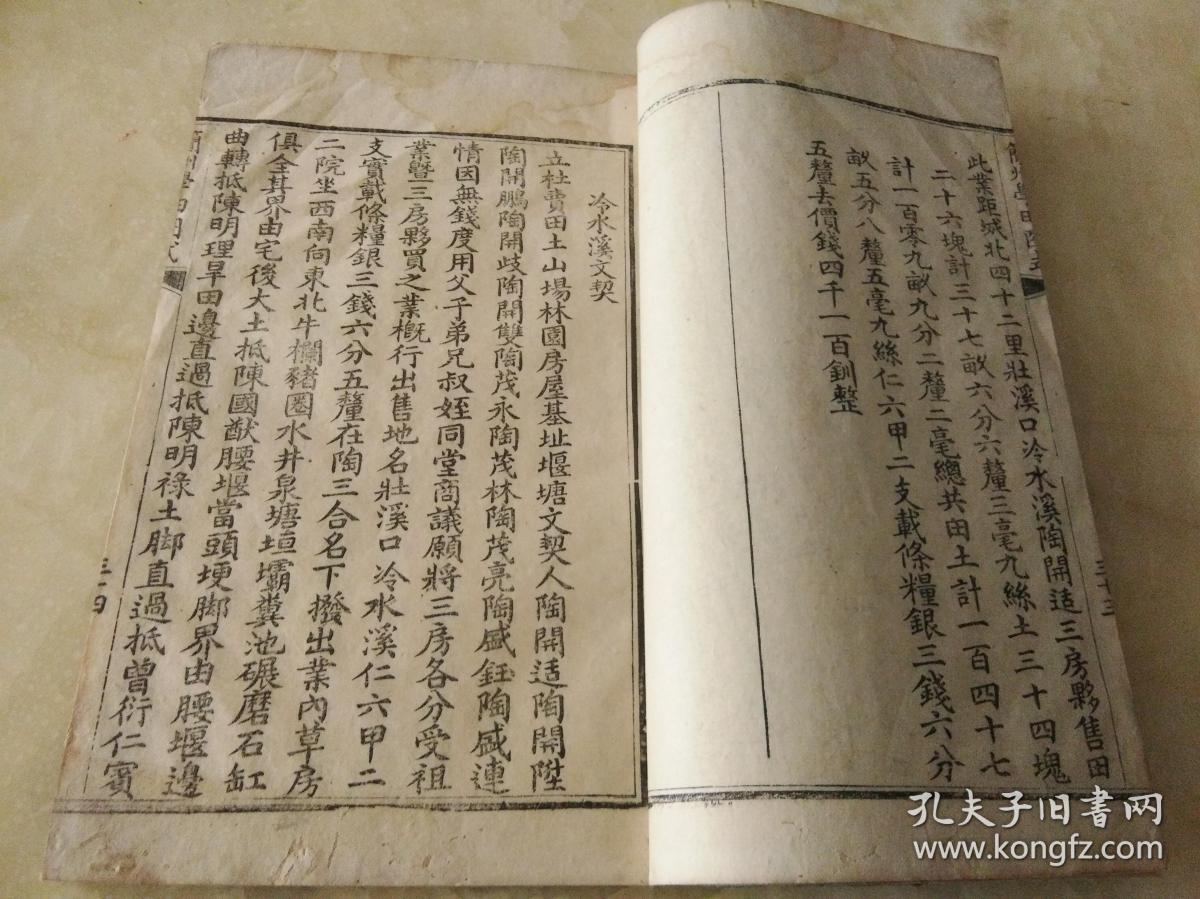 此業距城北四十二里壯溪口冷水溪陶開适三房夥售田
二十六塊計三十七畝六分六釐三毫九絲土三十四塊
計一百零九畝九分二釐二毫總共田土計一百四十七
畝五分八釐五毫九絲仁六甲二支載條糧銀三錢六分
五釐去價錢四千一百釧整
三十三
冷水溪文契
立杜賣田土山場林園房屋基址堰塘文契人陶開适陶開陞
陶開鵬陶開歧陶開雙陶茂永陶茂林陶茂亮陶盛鈺陶盛連
情因無錢度用父子弟兄叔姪同堂商議願將三房各分受祖
業暨三房夥買之業概行出售地名壯溪口冷水溪仁六甲二
支實載條糧銀三錢六分五釐在陶三合名下撥出業內草房
二院坐西南向東北牛欄豬圈水井泉塘垣壩糞池碾磨石缸
俱全其界由宅後大土抵陳國猷腰堰當頭埂腳界由腰堰邊
曲轉抵陳明理旱田邊直過抵陳明祿土腳直過抵曾衍仁賓
三十四
孔夫子旧书网
www.kongfz.com